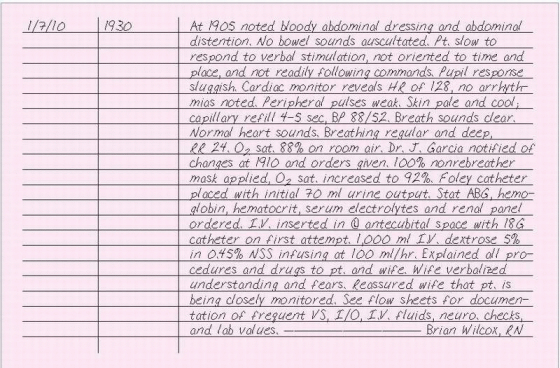 1/7/10 1930 At 1905 noted bloody abdominal dressing and abdominal
distention. No bowel sounds auscultated. Pt. slow to
respond to verbal stimulation, not oriented to time and
place, and not readily following commands. Pupil response
sluggish. Cardiac monitor reveals HR of 128, no arrhyth-
mias noted. Peripheral pulses weak. Skin pale and cool,
capillary refill 4-5 sec, BP 88/52. Breath sounds clear.
Normal heart sounds. Breathing regular and deep,
RR 24. O₂ sat. 88% on room air. Dr. J. Garcia notified of
changes at 1910 and orders given. 100% nonrebreather
mask applied, O₂ sat. increased to 92%. Foley catheter
placed with initial 70 ml urine output. Stat ABG, hemo-
globin, hematocrit, serum electrolytes and renal panel
ordered. I.V. inserted in Ⓛ antecubital space with 18G
catheter on first attempt. 1,000 ml I.V. dextrose 5%
in 0.45% NSS infusing at 100 ml/hr. Explained all pro-
cedures and drugs to pt. and wife. Wife verbalized
understanding and fears. Reassured wife that pt. is
being closely monitored. See flow sheets for documen-
tation of frequent VS, I/O, I.V. fluids, neuro. checks,
and lab values. ———————— Brian Wilcox, RN